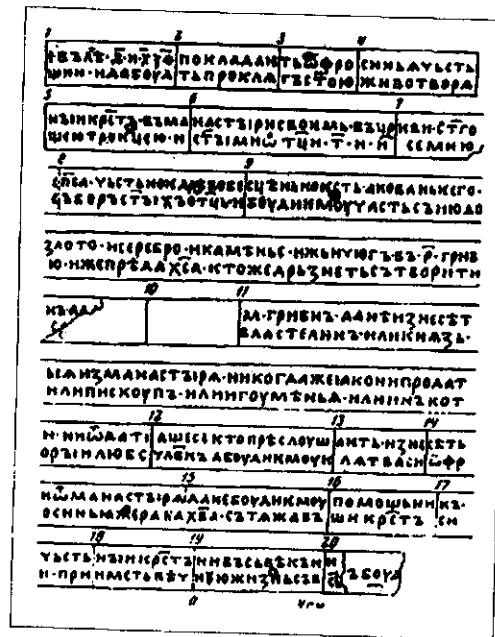 1 2 3 4
+ ВЪ ЛѢ҃Т · Ѕ҃ · И · Х҃Ѯ҃Ѳ ПОКЛАДАѤТЬ Ѡ҃ФРОСИНЬѦ ЧЬСТЬ
ШИИ · И ДА БОУДѤТЬ ПРОКЛѦТЪ С҃ТОЮ ЖИВОТВОРѦ
5 6 7
НЪИИ КР҃СТЪ · ВЪ МАНАСТЪІРИ СВОѤМЬ · ВЪ ЦР҃КВИ · С҃ТГО
ЩЕЮ ТРОИЦЕЮ · И С҃ТЪІМИ Ѡ҃ТЦИ · Т҃ · И · И҃ СЕМИЮ
8 9
С҃ПСА · ЧЬСТЬНОѤ ДРѢВО БЕСЦѢНЬНО ѤСТЬ · А КОВАНЬѤ ЕГО ·
СЪБОРЪ С҃ТЪІХЪ ОТЦЬ И БОУДИ ѤМОУ ЧѦСТЬ СЪ ИЮДО
ЗЛОТО · И СЕРЕБРО · И КАМѢНЬЕ · И ЖЬНЧЮГЪ ВЪ · Р҃ · ГРИВ
Ю · ИЖЕ ПРѢДА Х҃СА · КТО ЖЕ ДРЬЗНЕТЬ СЪТВОРИТИ
10 11
НЪ · А ДА М҃ · ГРИВНЪ · ДА НѢ ИЗНЕСѢТ
СЕ ВЛАСТЕЛИНЪ · ИЛИ КНѦЗЬ ·
ЬСѦ ИЗ МАНАСТЪІРѦ · НИКОГДА ЖЕ ІАКО НИ ПРОДАТ
ИЛИ ПИСКОУПЪ · ИЛИ ИГОУМѢНЬѦ · ИЛИ ИНЪ КОТ
12 13 14
И · НИ Ѡ҃ДАТІ АЩЕ СЕ КТО ПРѢСЛОУШАѤТЬ · ИЗНЕСѢТЬ
ОРЪІИ ЛЮБО ЧЛ҃ВКЪ А БОУДИ ѤМОУ КЛѦТВА СИ Ѡ҃ФР
15 16 17
И Ѡ҃ МАНАСТЪІРѦ ДА НЕ БОУДИ ѤМОУ ПОМОЩЬНИКЪ ·
ОСИНЬѦ ЖЕ РАБА Х҃ВА · СЪТѦЖАВЪШИ КР҃СТЪ СИ
18 19 20
ЧЬСТЬНЪІИ КР҃СТЪ НИ ВЪ СЬ ВѢКЪ НИ ВЪ БОУД
И · ПРИИМЕТЬ ВѢЧНУЮ ЖИЗНЬ СЪ В